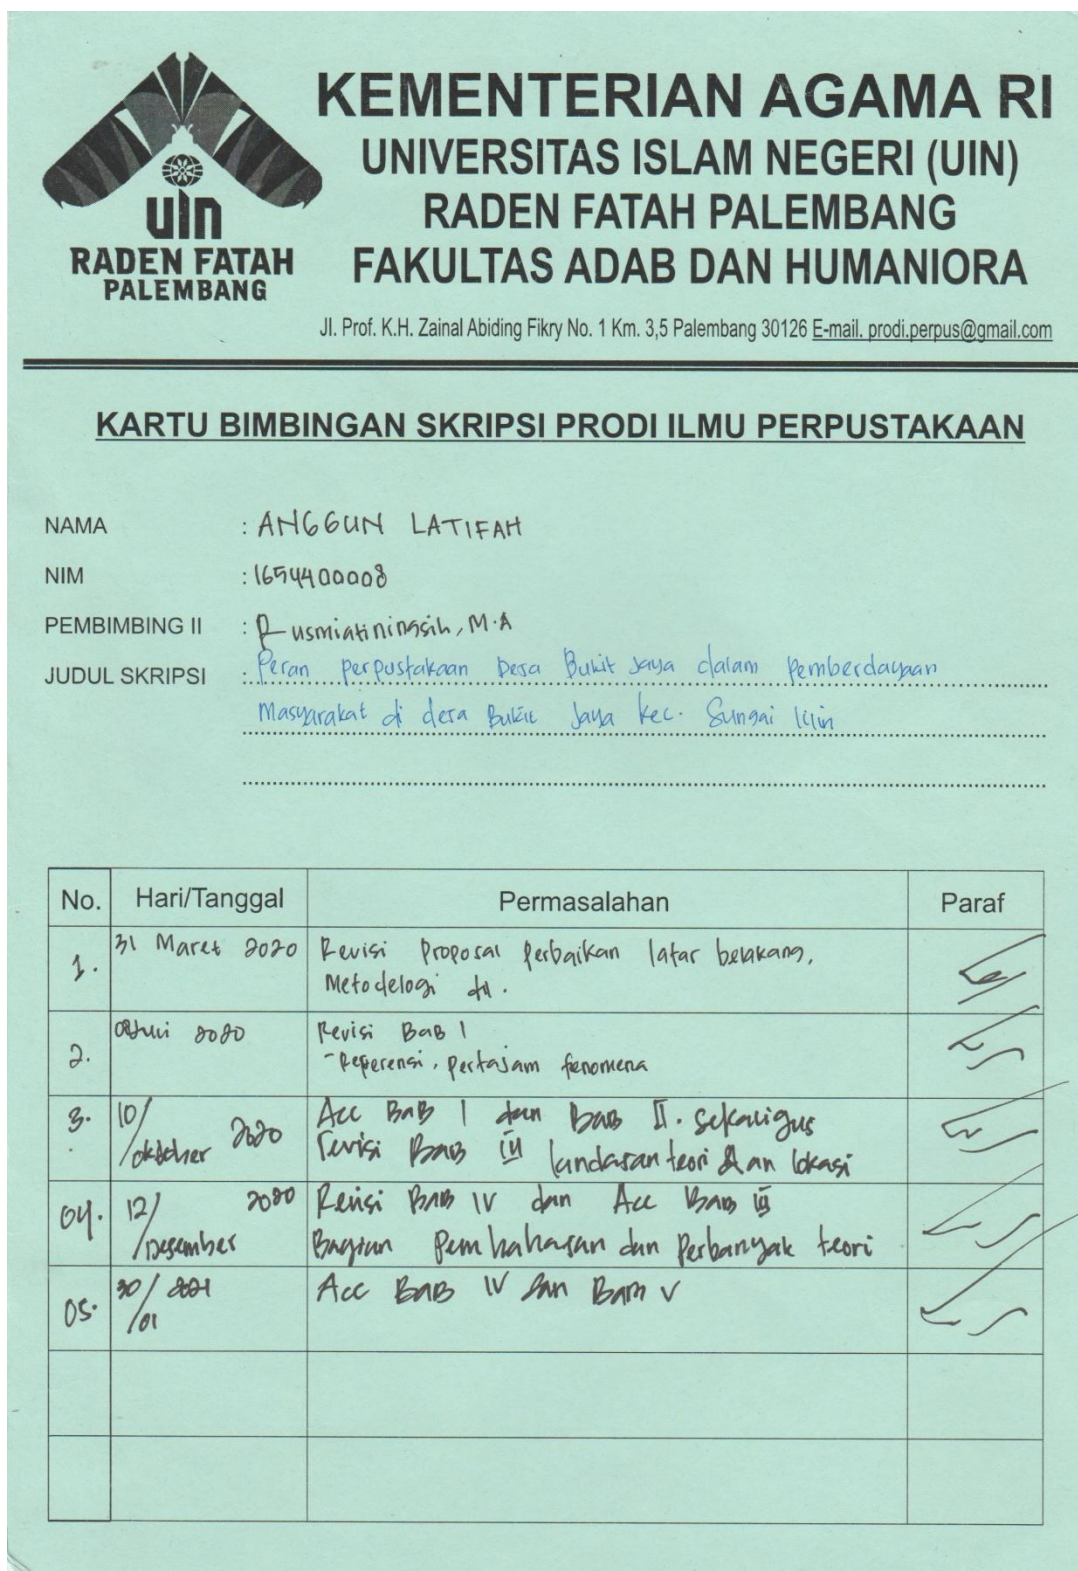 KEMENTERIAN AGAMA RI
UNIVERSITAS ISLAM NEGERI (UIN)
RADEN FATAH PALEMBANG
FAKULTAS ADAB DAN HUMANIORA
uin
RADEN FATAH
PALEMBANG
Jl. Prof. K.H. Zainal Abiding Fikry No. 1 Km. 3,5 Palembang 30126 E-mail. prodi.perpus@gmail.com
KARTU BIMBINGAN SKRIPSI PRODI ILMU PERPUSTAKAAN
NAMA : ANGGUN LATIFAH
NIM : 1654400008
PEMBIMBING II : Rusmiatiningsih, M.A
JUDUL SKRIPSI : Peran perpustakaan Desa Bukit Jaya dalam Pemberdayaan
Masyarakat di desa Bukit Jaya Kec. Sungai Lilin
No. Hari/Tanggal Permasalahan Paraf
1. 31 Maret 2020 Revisi Proposal Perbaikan latar belakang,
Metodelogi dll.
2. 2020 Revisi BAB I
- Referensi, Pertajam fenomena
3. 10/ oktober 2020 Acc BAB I dan Bab II. sekaligus
revisi BAB III landasan teori dan lokasi
04. 12/ Desember 2020 Revisi BAB IV dan Acc Bab III
Bagian Pembahasan dan Perbanyak teori
05. 30/01 2021 Acc BAB IV dan Bab V